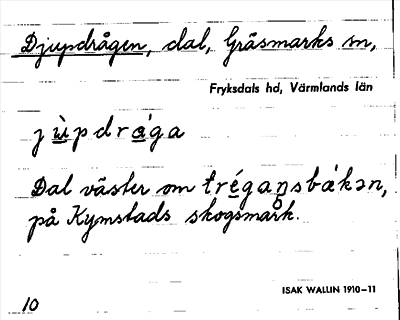 Djupdrågen, dal, Gräsmarks sn,
Fryksdals hd, Värmlands län
jùpdrága
Dal väster om trégaŋsbákən,
på Kymstads skogsmark.
ISAK WALLIN 1910–11
10